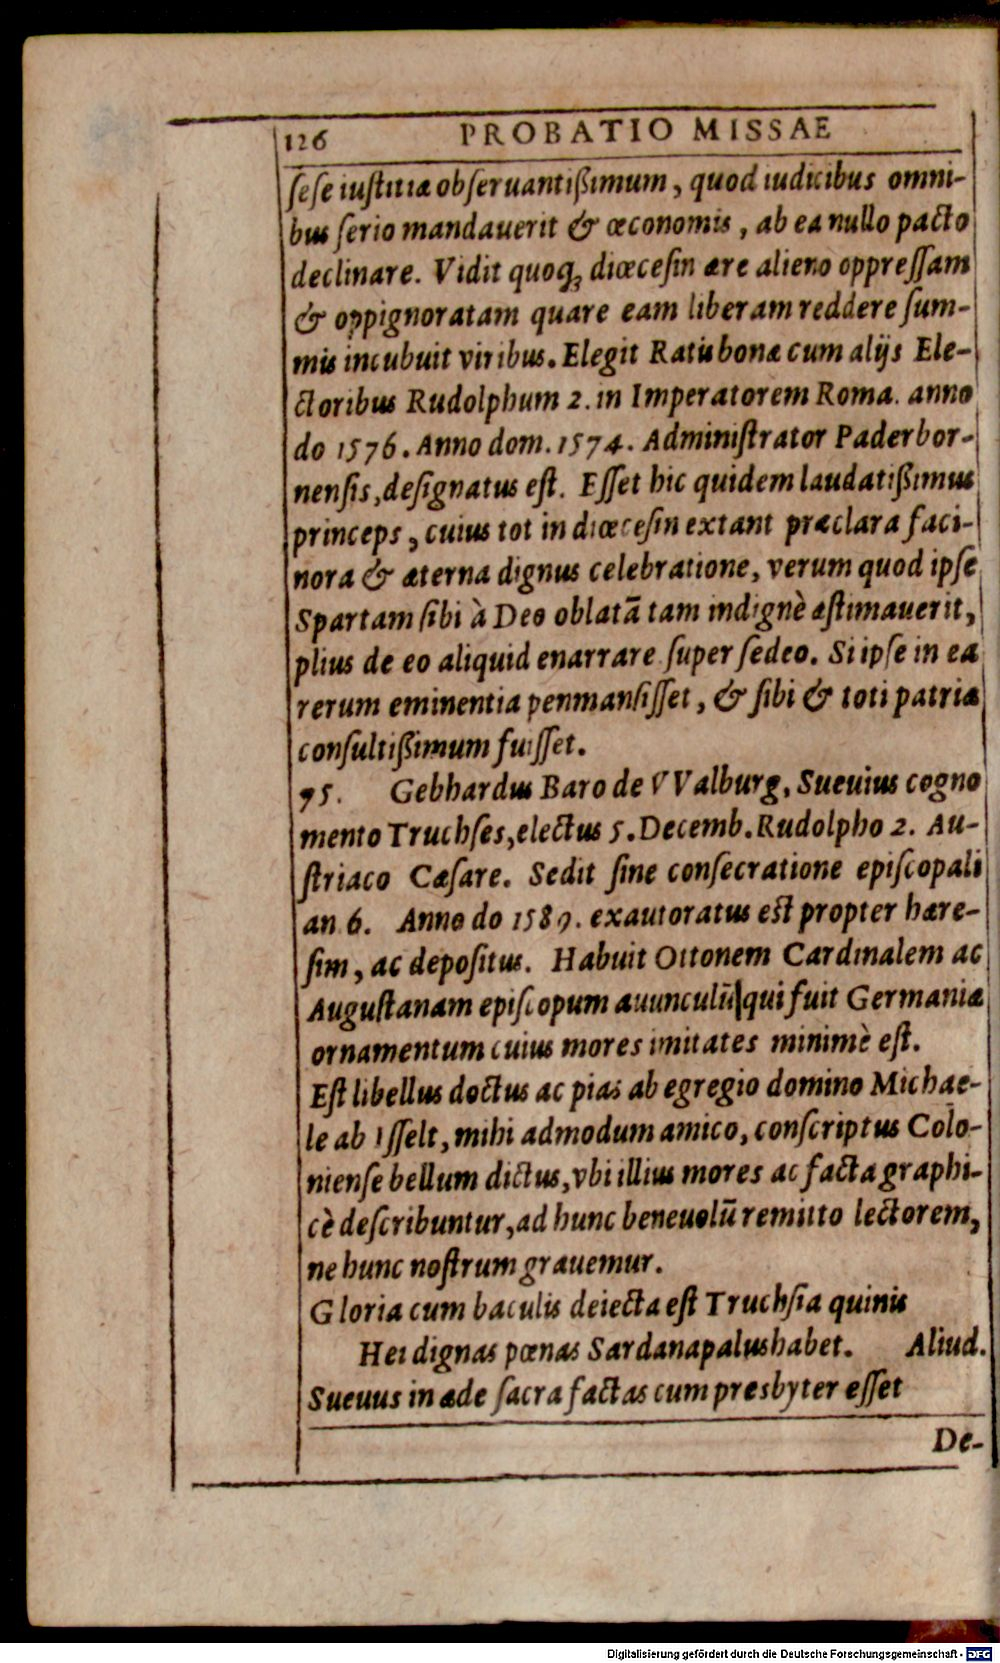 126 PROBATIO MISSAE
ſeſe iuſtitiæ obſeruantißimum, quod iudicibus omni-
bus ſerio mandauerit & œconomis, ab ea nullo pacto
declinare. Vidit quoq; diœceſin ære alieno oppreſſam
& oppignoratam quare eam liberam reddere ſum-
mis incubuit viribus. Elegit Ratisbonæ cum alijs Ele-
ctoribus Rudolphum 2. in Imperatorem Roma. anno
do 1576. Anno dom. 1574. Adminiſtrator Paderbor-
nenſis, deſignatus eſt. Eſſet hic quidem laudatißimus
princeps, cuius tot in diœceſin extant præclara faci-
nora & æterna dignus celebratione, verum quod ipſe
Spartam ſibi à Deo oblatã tam indignè æſtimauerit,
plius de eo aliquid enarrare ſuper ſedeo. Si ipſe in ea
rerum eminentia penmanſiſſet, & ſibi & toti patriæ
conſultißimum fuiſſet.
75. Gebhardus Baro de VValburg, Sueuius cogno
mento Truchſes, electus 5. Decemb. Rudolpho 2. Au-
ſtriaco Cæſare. Sedit ſine conſecratione epiſcopali
an 6. Anno do 1589. exautoratus est propter hære-
ſim, ac depoſitus. Habuit Ottonem Cardinalem ac
Auguſtanam epiſcopum auunculũ qui fuit Germaniæ
ornamentum cuius mores imitates minimè eſt.
Eſt libellus doctus ac pias ab egregio domino Michae-
le ab Iſſelt, mihi admodum amico, conſcriptus Colo-
nienſe bellum dictus, vbi illius mores ac facta graphi-
cè deſcribuntur, ad hunc beneuolũ remitto lectorem,
ne hunc noſtrum grauemur.
Gloria cum baculis deiecta eſt Truchſia quinis
Hei dignas pœnas Sardanapalus habet. Aliud.
Sueuus in æde ſacra factas cum presbyter eſſet
De-
Digitalisierung gefördert durch die Deutsche Forschungsgemeinschaft - DFG